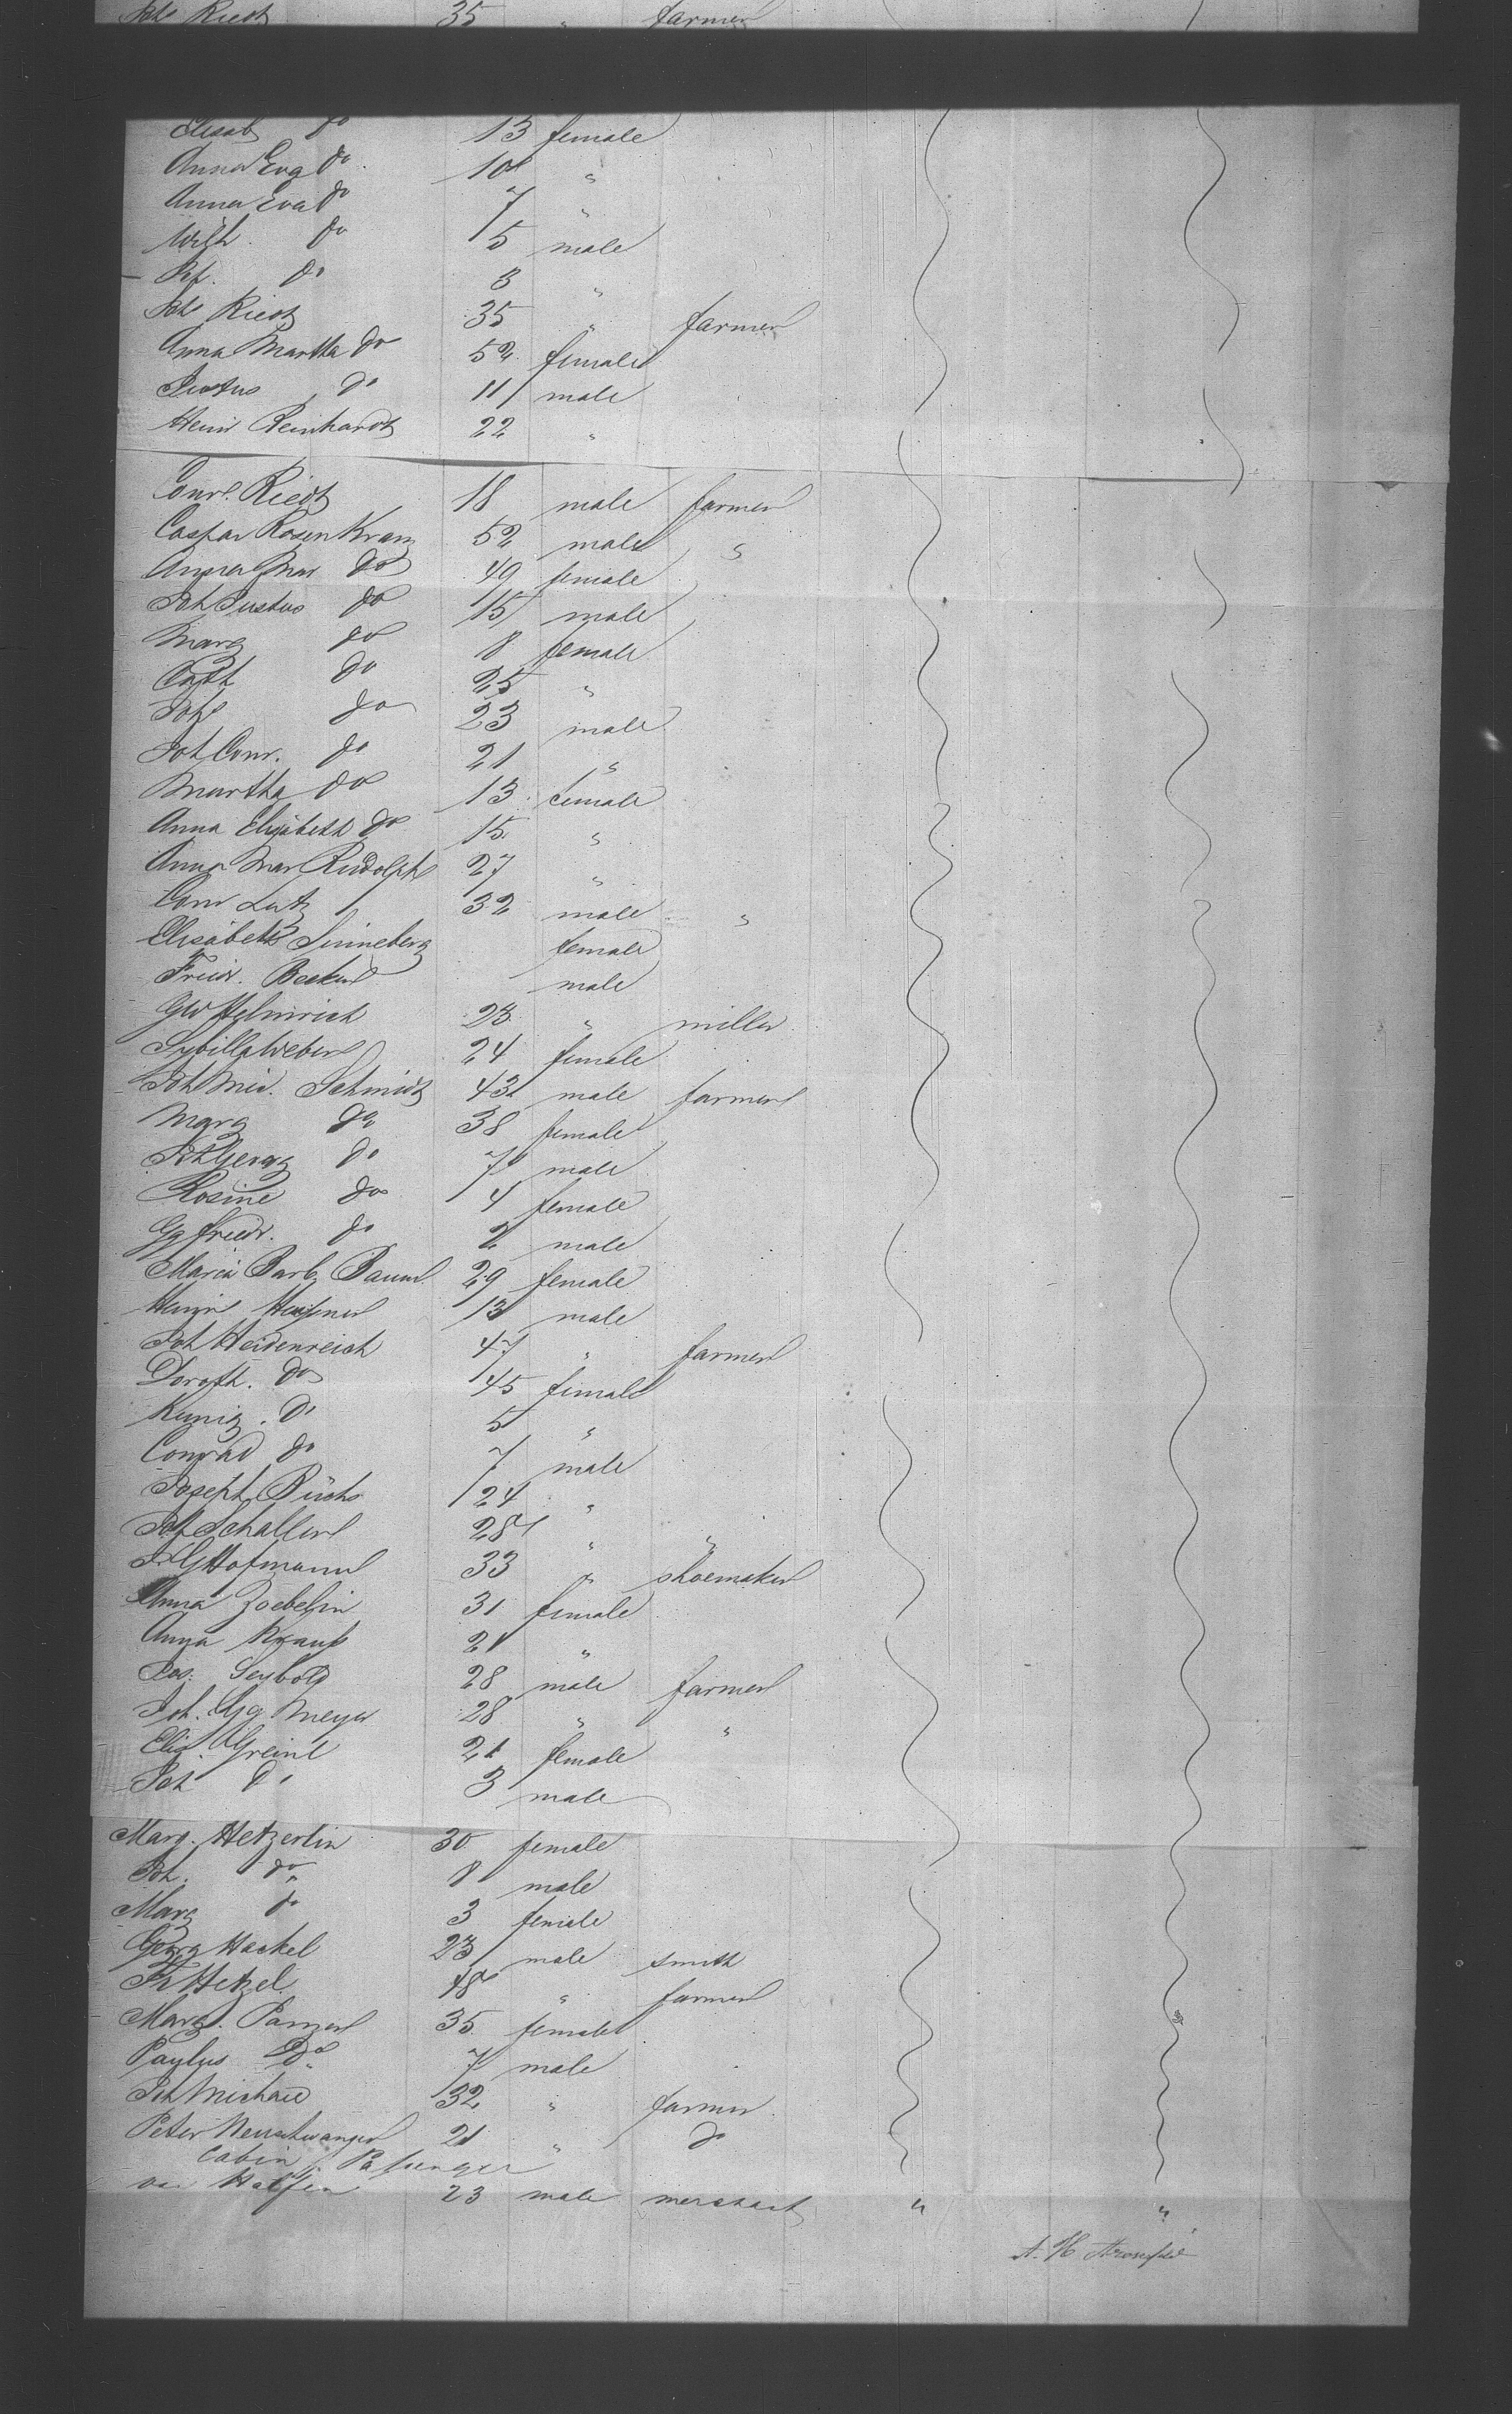 Joh Riedt 35 " farmer
Elisab do 13 female
Anna Evg do 10 "
Anna Eva do 7 "
Wilh. do 5 male
do 3 "
Joh Riedt 35 " farmer
Anna Martha do 52 female
Justus do 11 male
Heinr Reinhardt 22 "
Conr. Riedt 18 male farmer
Caspar Rosenkranz 52 male "
Anna Mar do 49 female
Joh Justus do 15 male
Marg do 8 female
Cath do 25 "
Joh do 23 male
Joh Conr. do 21 "
Martha do 13 female
Anna Elisabeth do 15 "
Anna Mar Rudolph 27 "
Conr Lutz 32 male "
Elisabeth Sinneberg female
Friedr. Becker male
Helmrich 23 " miller
Sybilla Weber 24 female
Joh Schmidt 43 male farmer
Marg do 38 female
Joh Georg do 7 male
Rosine do 4 female
Gg friedr. do 2 male
Maria Barb. Bauer 29 female
Heinr 13 male
Joh Heidenreich 47 " farmer
Doroth. do 45 female
Kunig. do 5 "
Conrad do 7 male
Joseph Büchs 24 "
Joh Schaller 28 " "
Hofmann 33 " shoemaker
Anna Zoebelin 31 female
Anna Krauß 21 "
Jos. Seybold 28 male farmer
Joh. Gg Meyer 28 " "
Elis. Greinl 21 female
Joh do 3 male
Marg. Hetzerlin 30 female
Joh. do 8 male
Marg do 3 female
Georg Hackel 23 male smith
Fr Hetzel 48 " farmer
Marg. Panzer 35 female
Paulus Do 7 male
Joh Michael 32 " farmer
Peter Neuschwanger 21 " do
Cabin Passenger
Halfen 23 male merchant " "
A. H.